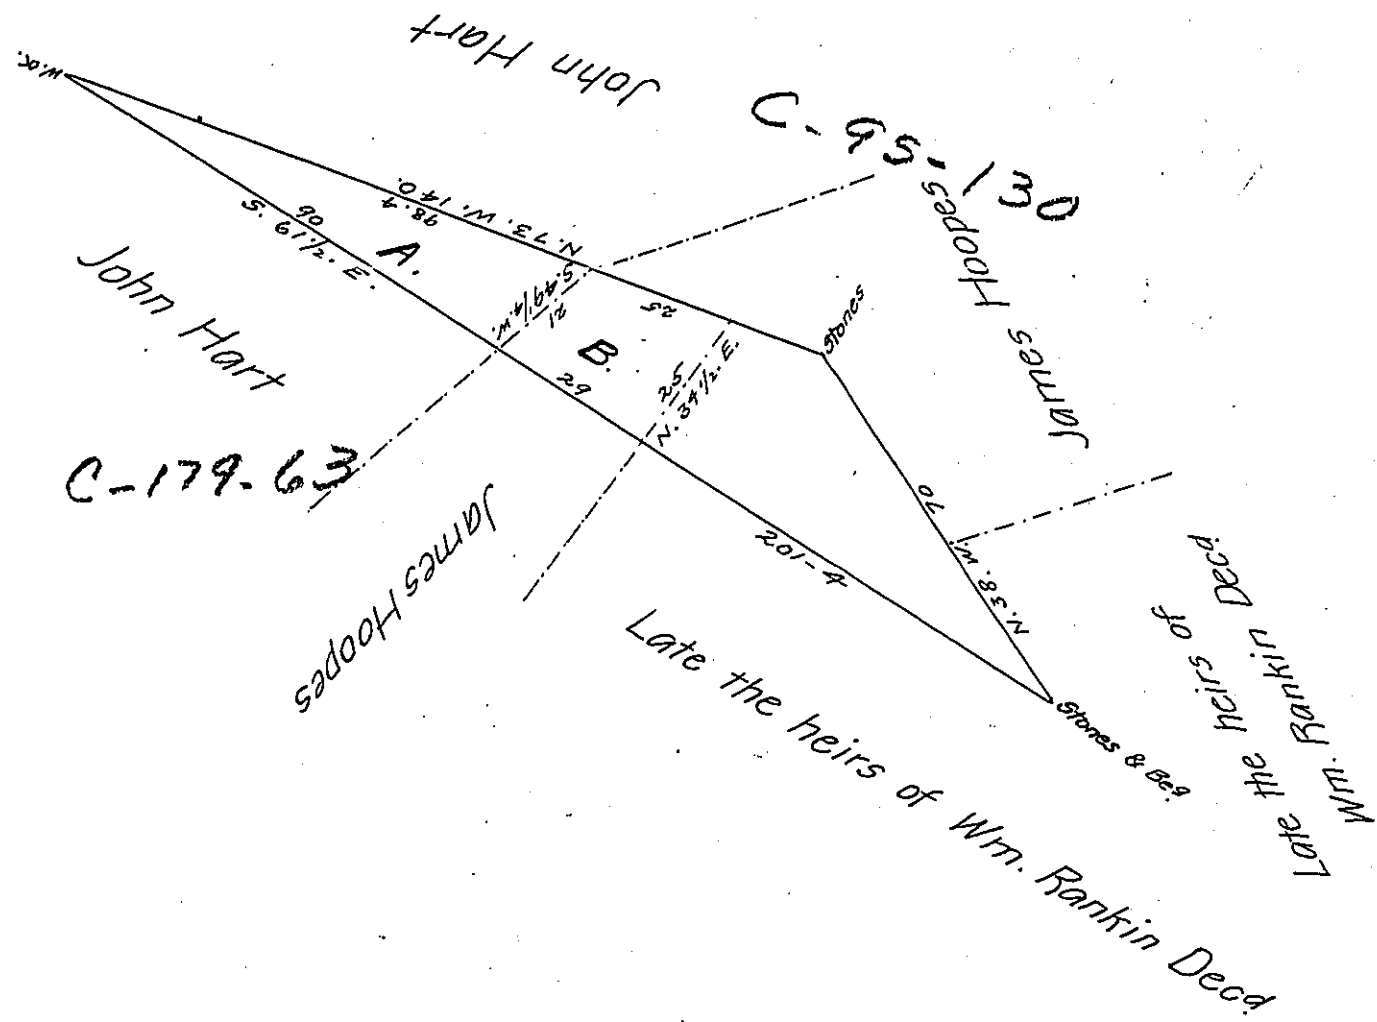 John Hart
C-95-130
W.O.
N. 73. W. 140.
98.4
A.
S. 61 1/2. E.
90
John Hart
S. 49 1/4. W.
21
25
B.
29
25
N. 34 1/2. E.
Stones
James Hoopes
C-179-63
James Hoopes
201-4
70
N. 38. W.
Stones & Beg.
Late the heirs of
Wm. Rankin Decd.
Late the heirs of Wm. Rankin Decd